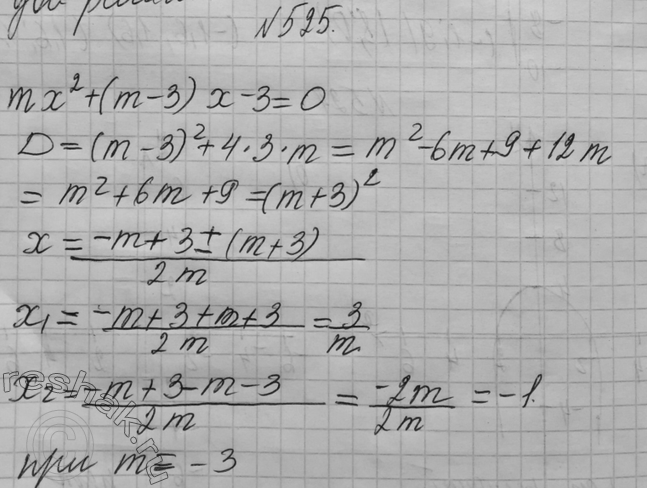 №525.
mx²+(m-3)x-3=0
D=(m-3)²+4·3·m=m²-6m+9+12m
=m²+6m+9=(m+3)²
x=\frac{-m+3±(m+3)}{2m}
x₁=\frac{-m+3+m+3}{2m}=\frac{3}{m}
x₂=\frac{-m+3-m-3}{2m}=\frac{-2m}{2m}=-1.
при m=-3
reshak.ru